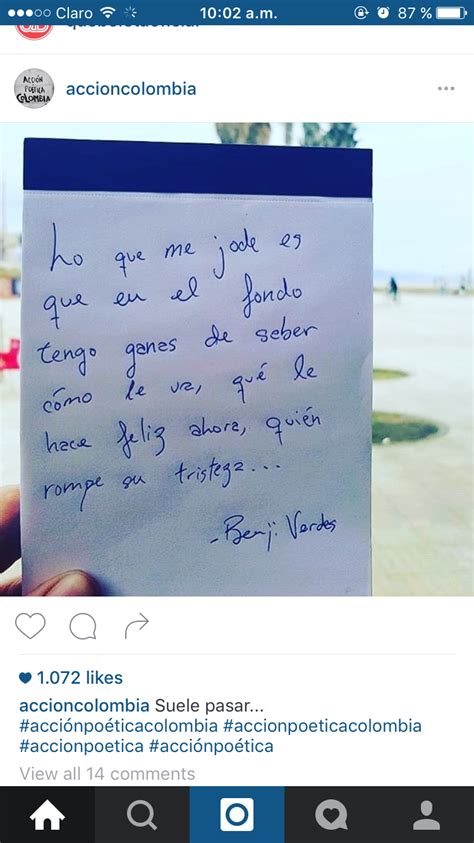 Claro 10:02 a.m. 87 %
ACCIÓN
POÉTICA
COLOMBIA
accioncolombia
Lo que me jode es
que en el fondo
tengo ganas de saber
cómo le va, qué le
hace feliz ahora, quién
rompe su tristeza...
- Benji Verdes
1.072 likes
accioncolombia Suele pasar...
#acciónpoéticacolombia #accionpoeticacolombia
#accionpoetica #acciónpoética
View all 14 comments